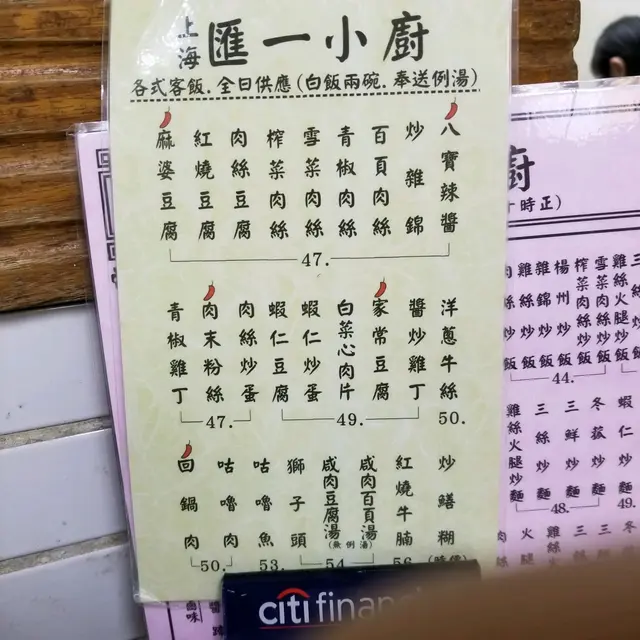 上海 匯一小廚
各式客飯.全日供應(白飯兩碗.奉送例湯)
八寶辣醬
炒雜錦
百頁肉絲
青椒肉絲
雪菜肉絲
榨菜肉絲
肉絲豆腐
紅燒豆腐
麻婆豆腐
47.
洋蔥牛絲
50.
醬炒雞丁
家常豆腐
白菜心肉片
蝦仁炒蛋
蝦仁豆腐
49.
肉絲炒蛋
肉末粉絲
青椒雞丁
47.
炒鱔糊
紅燒牛腩
56.
咸肉百頁湯
咸肉豆腐湯
(無例湯)
54.
獅子頭
咕嚕魚
53.
咕嚕肉
回鍋肉
50.
citifinan
廚
時正)
雪菜肉絲炒飯
榨菜肉絲炒飯
楊州炒飯
雜錦炒飯
雞絲炒飯
肉絲炒飯
44.
蝦仁炒麵
49.
冬菇炒麵
三鮮炒麵
三絲炒麵
48.
雞絲火腿炒麵